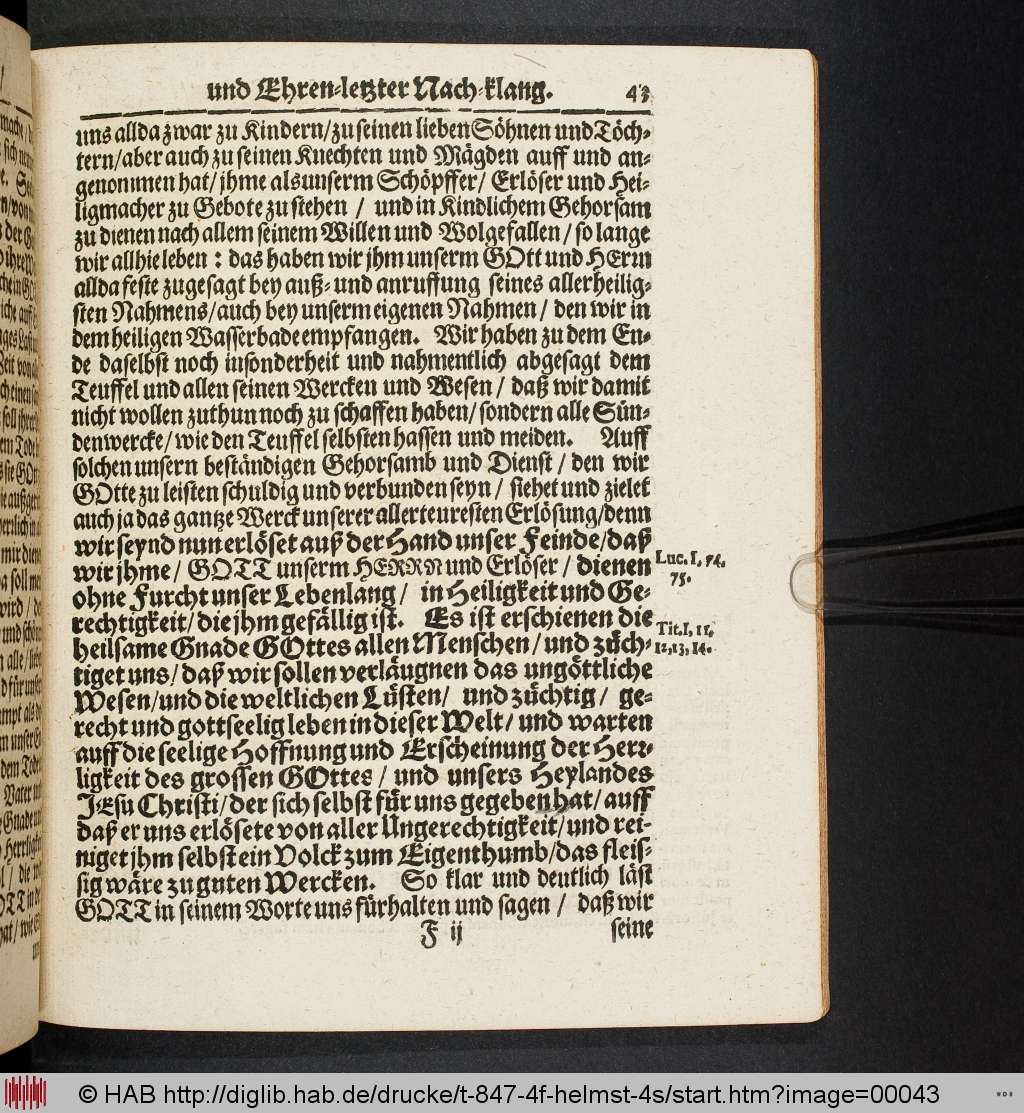 und Ehren-letzter Nach-klang. 43
uns allda zwar zu Kindern/zu seinen lieben Söhnen und Töch-
tern/aber auch zu seinen Knechten und Mägden auff und an-
genommen hat/jhme als unserm Schöpffer/ Erlöser und Hei-
ligmacher zu Gebote zu stehen / und in Kindlichem Gehorsam
zu dienen nach allem seinem Willen und Wolgefallen/so lange
wir allhie leben : das haben wir jhm unserm GOtt und HErrn
allda feste zugesagt bey auß- und anruffung seines allerheilig-
sten Nahmens/auch bey unserm eigenen Nahmen / den wir in
dem heiligen Wasserbade empfangen. Wir haben zu dem En-
de daselbst noch insonderheit und nahmentlich abgesagt dem
Teuffel und allen seinen Wercken und Wesen / daß wir damit
nicht wollen zuthun noch zu schaffen haben/sondern alle Sün-
denwercke/wie den Teuffel selbsten hassen und meiden. Auff
solchen unsern beständigen Gehorsamb und Dienst / den wir
GOtte zu leisten schuldig und verbunden seyn / siehet und zielet
auch ja das gantze Werck unserer allerteuresten Erlösung/denn
wir seynd nun erlöset auß der Hand unser Feinde/daß
wir jhme/ GOTT unserm HERRN und Erlöser / dienen
Luc. I, 74.
75.
ohne Furcht unser Lebenlang / in Heiligkeit und Ge-
rechtigkeit/die jhm gefällig ist. Es ist erschienen die
Tit. I, 11.
12,13, 14.
heilsame Gnade GOttes allen Menschen/und züch-
tiget uns/daß wir sollen verläugnen das ungöttliche
Wesen/und die weltlichen Lüsten/ und züchtig / ge-
recht und gottseelig leben in dieser Welt/und warten
auff die seelige Hoffnung und Erscheinung der Herr-
ligkeit des grossen GOttes / und unsers Heylandes
JEsu Christi/der sich selbst für uns gegeben hat/auff
daß er uns erlösete von aller Ungerechtigkeit/und rei-
niget jhm selbst ein Volck zum Eigenthumb/das fleis-
sig wäre zu guten Wercken. So klar und deutlich läst
GOTT in seinem Worte uns fürhalten und sagen / daß wir
F ij seine
© HAB http://diglib.hab.de/drucke/t-847-4f-helmst-4s/start.htm?image=00043